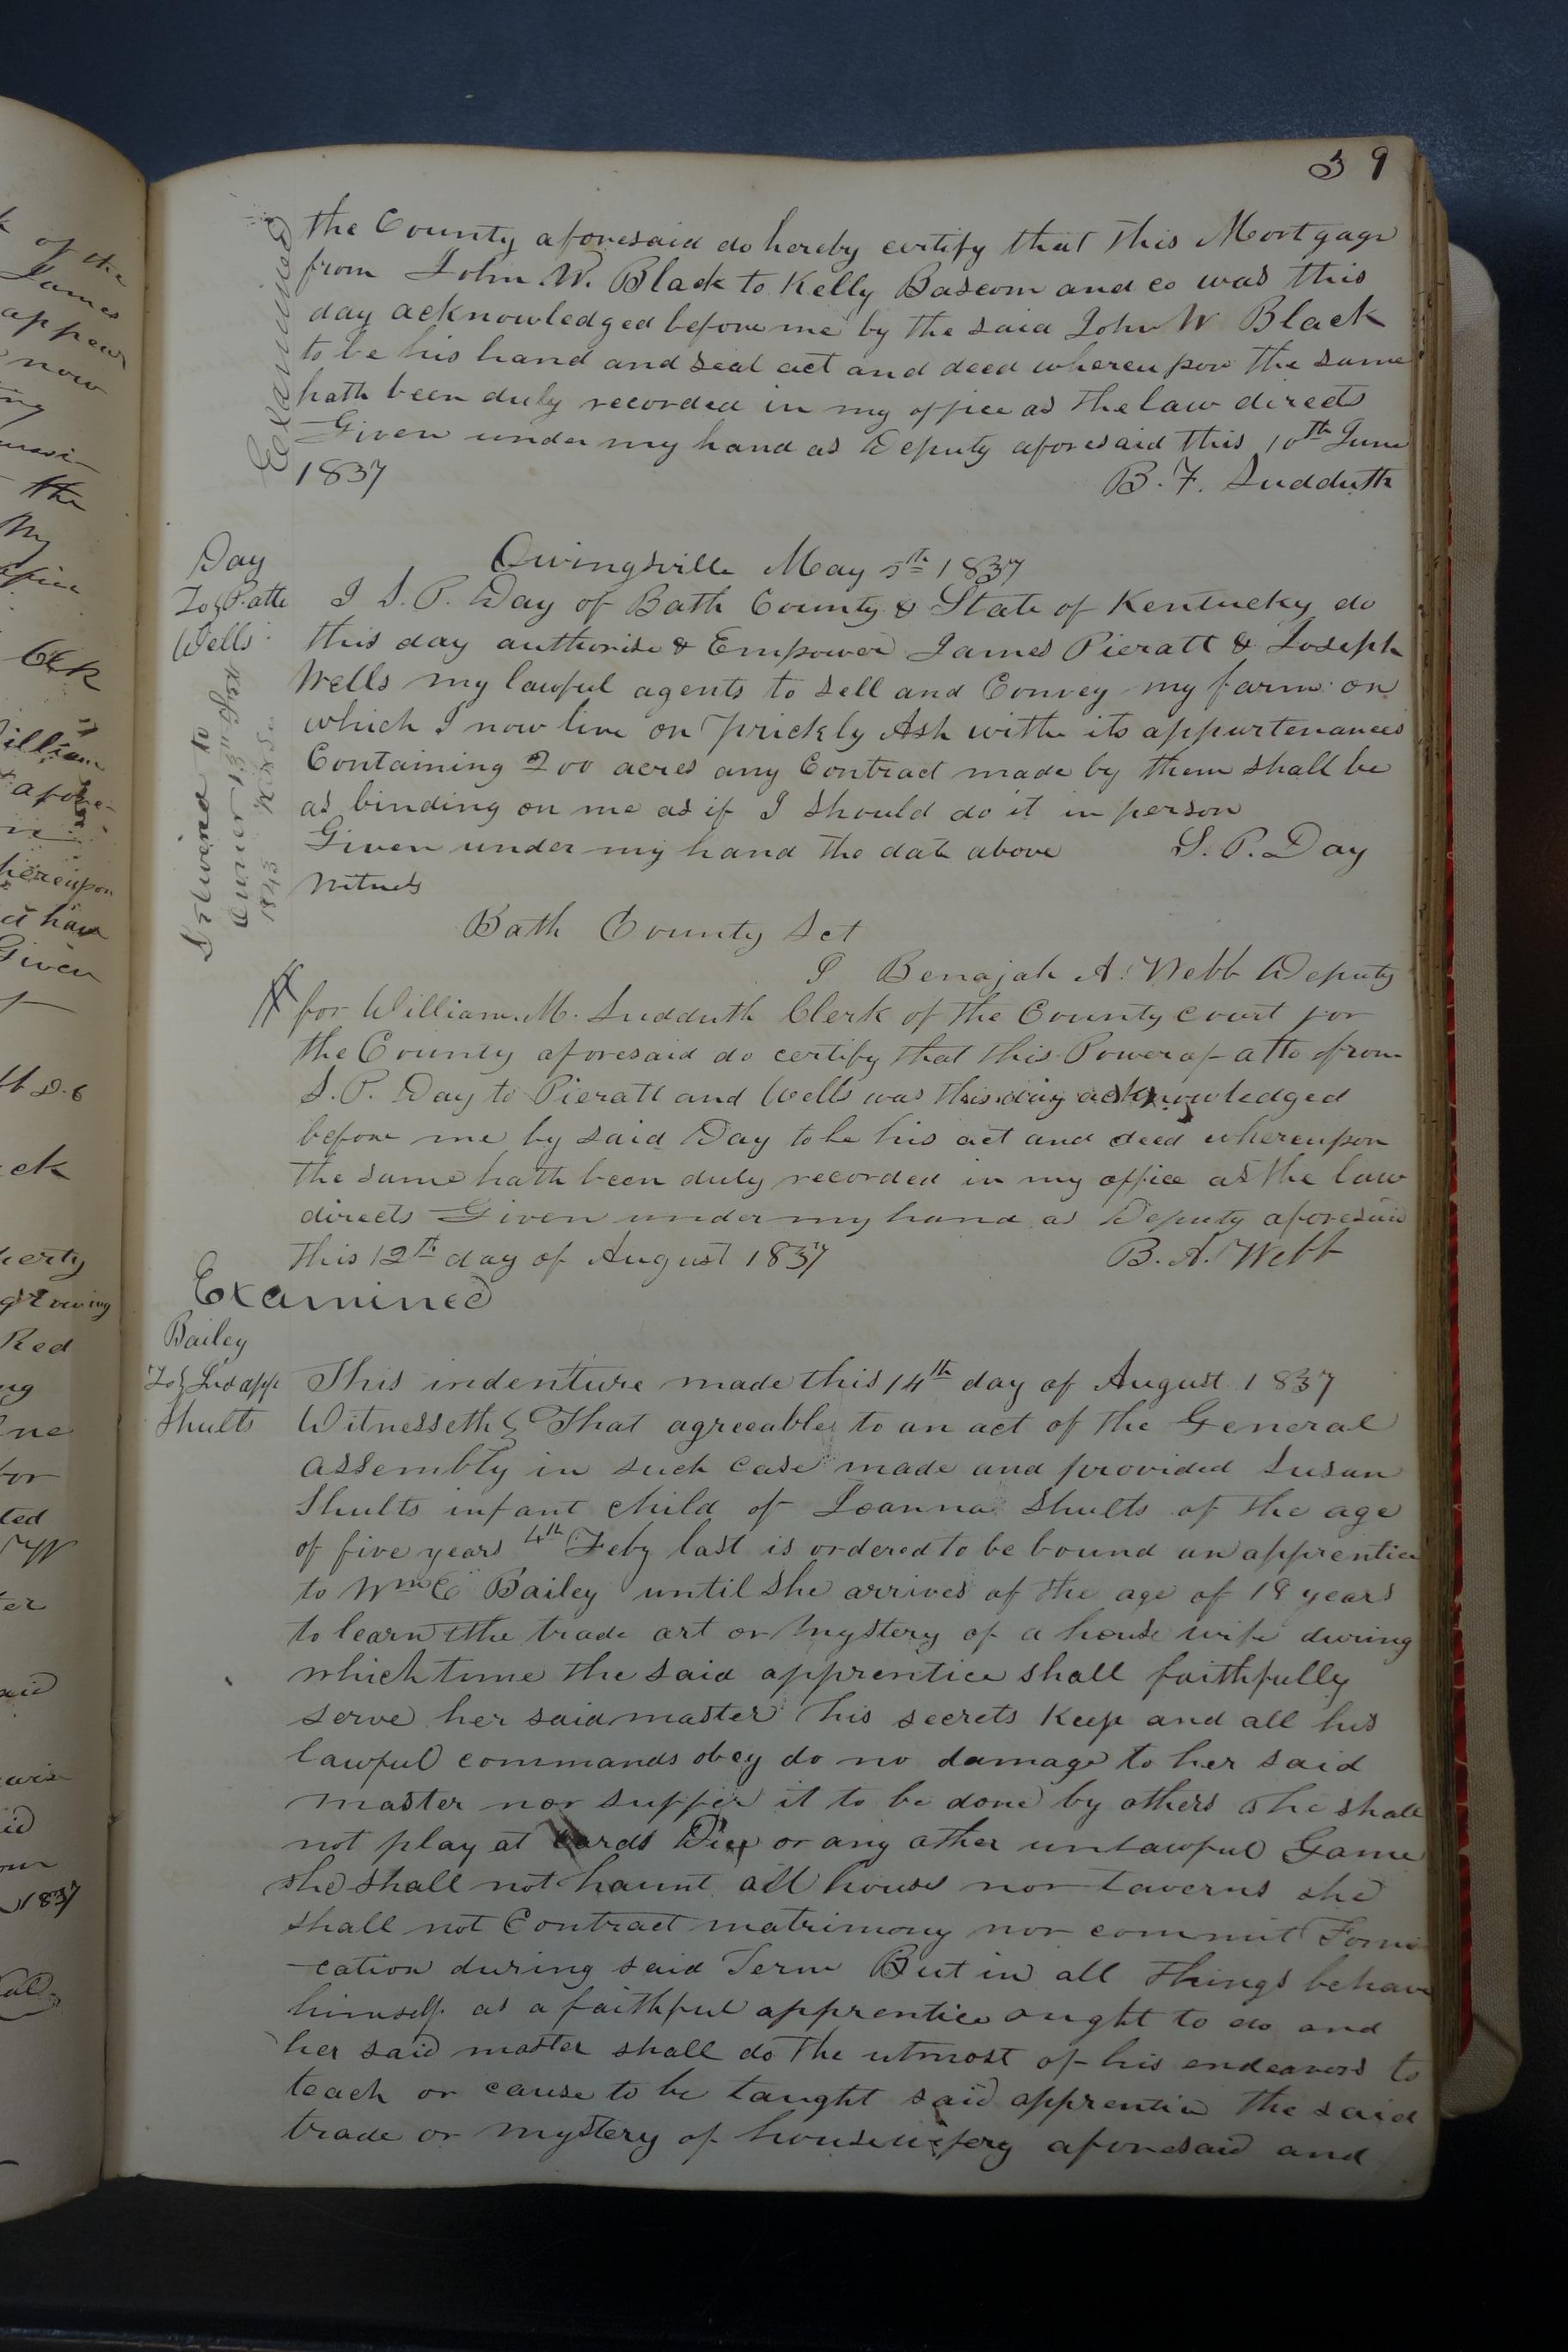 39
Examined
the County aforesaid do hereby certify that this Mortgage
from John W. Black to Kelly Bascom and co was this
day acknowledged before me by the said John W Black
to be his hand and seal act and deed whereupon the same
hath been duly recorded in my office as the law directs
Given under my hand as Deputy aforesaid this 10th June
1837 B. F. Sudduth
Day
To Patte
Wells
Owingsville May 5th 1837
I S. P. Day of Bath County & State of Kentucky do
this day authorise & Empower James Pieratt & Joseph
Wells my lawful agents to sell and Convey my farm on
which I now live on prickly Ash with its appurtenances
Containing 200 acres any Contract made by them shall be
as binding on me as if I should do it in person
Given under my hand the date above S. P. Day
witness
Delivered to
owner 13th
1843
Bath County Sct
I Benajah A. Webb Deputy
for William M. Sudduth Clerk of the County court for
the County aforesaid do certify that this Power of atto from
S. P. Day to Pieratt and Wells was this day acknowledged
before me by said Day to be his act and deed whereupon
the same hath been duly recorded in my office as the law
directs Given under my hand as Deputy aforesaid
this 12th day of August 1837 B. A. Webb
Examined
Bailey
To Ind app
Shults
This indenture made this 14th day of August 1837
Witnesseth That agreeable to an act of the General
assembly in such case made and provided Susan
Shults infant child of Joanna Shults of the age
of five years 4th Feby last is ordered to be bound an apprentice
to Wm C Bailey until she arrives of the age of 18 years
to learn the trade art or mystery of a house wife during
which time the said apprentice shall faithfully
serve her said master his secrets keep and all his
lawful commands obey do no damage to her said
master nor suffer it to be done by others she shall
not play at cards Dice or any other unlawful Game
she shall not haunt all houses nor taverns she
shall not Contract matrimony nor commit Forni
-cation during said Term But in all things behave
himself as a faithful apprentice ought to do and
her said master shall do the utmost of his endeavors to
teach or cause to be taught said apprentice the said
trade or mystery of housewifery aforesaid and